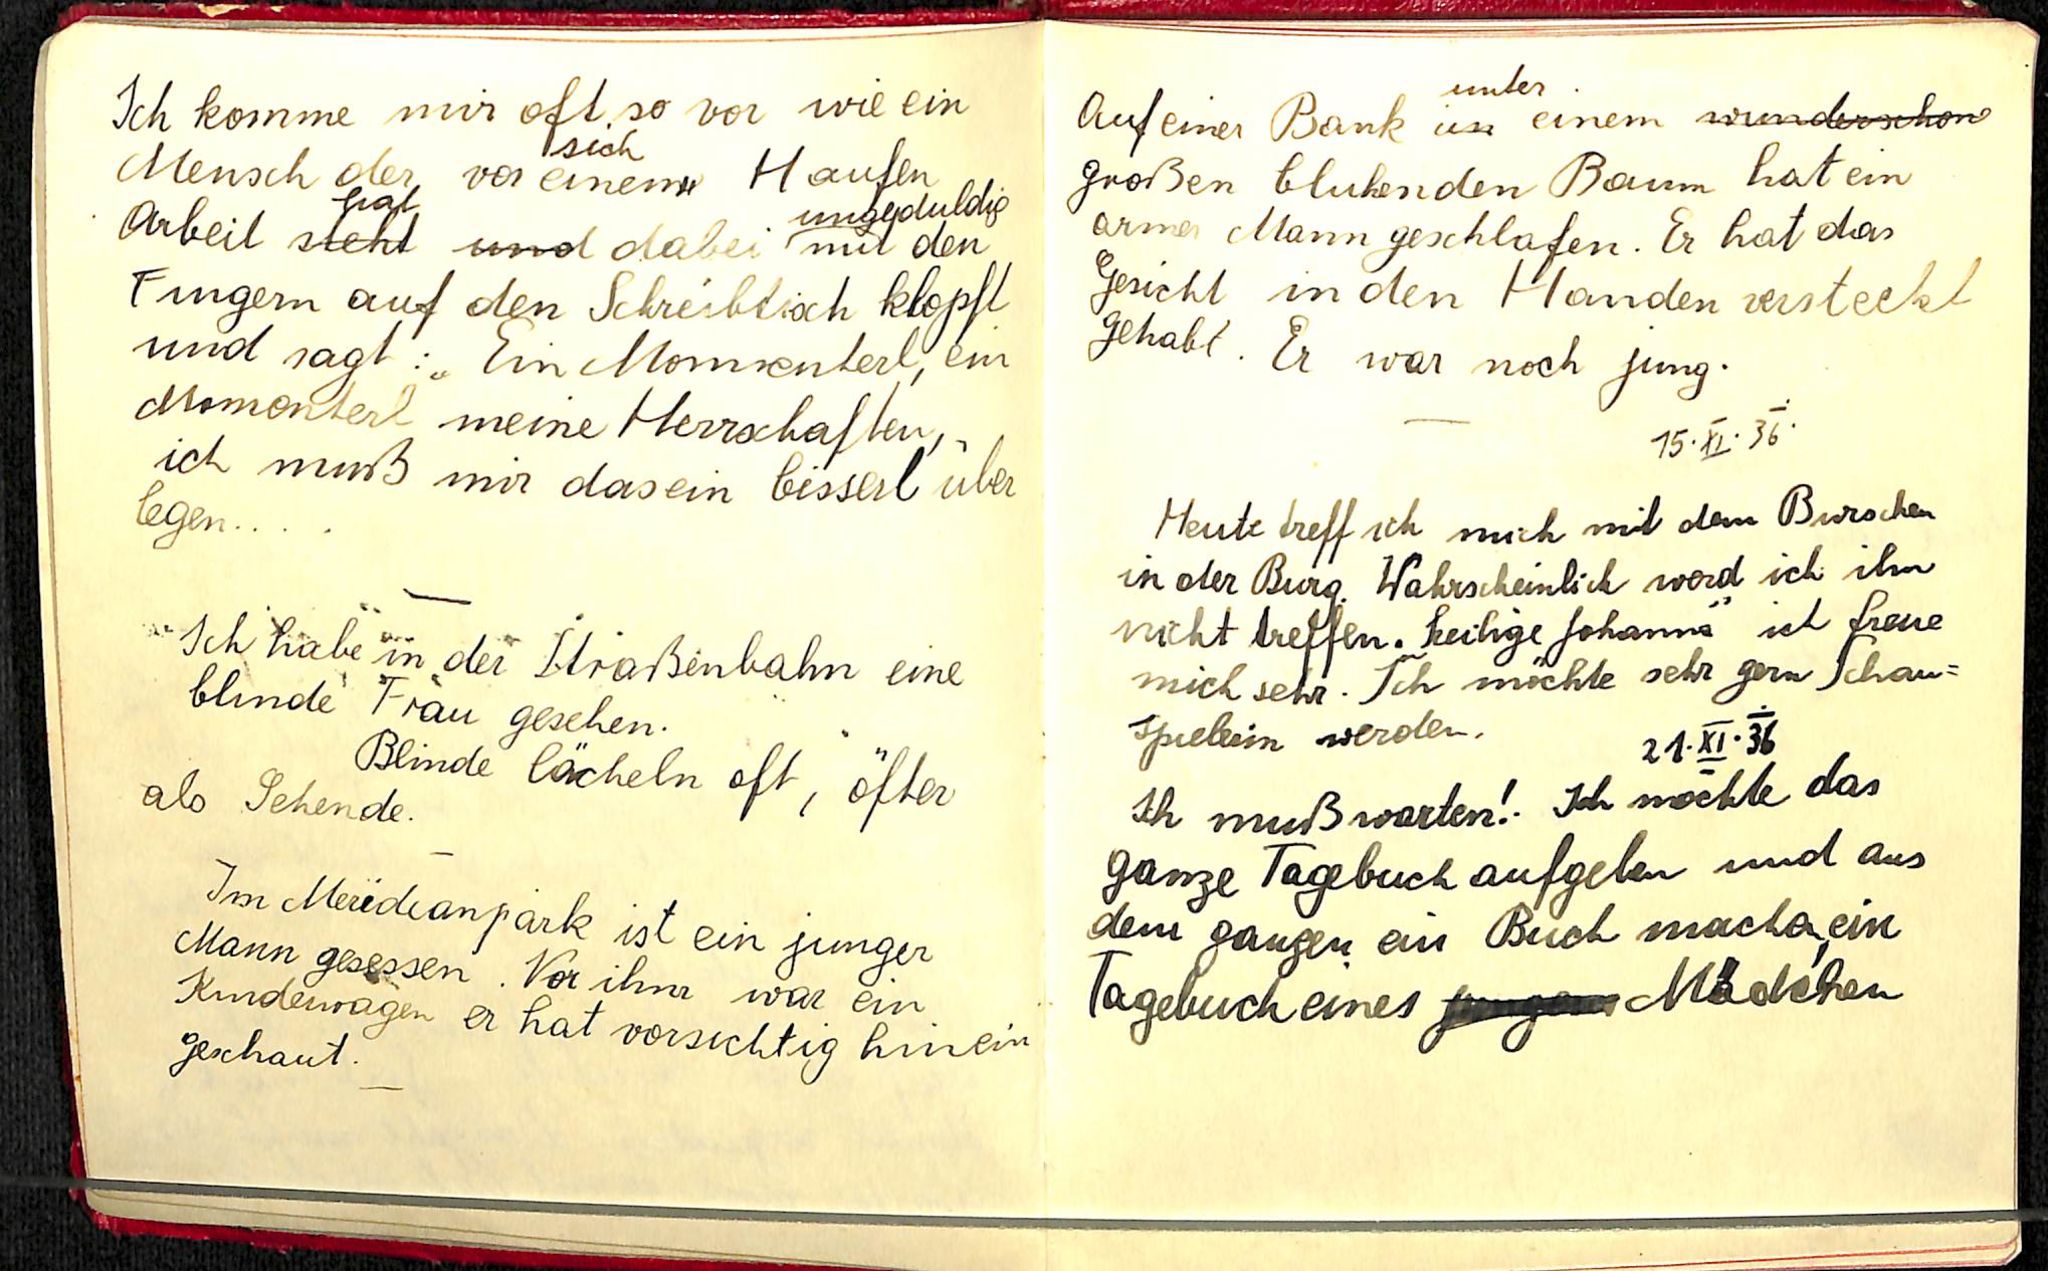 Ich komme mir oft so vor wie ein
Mensch der vor sich einen Haufen
Arbeit steht hat und dabei ungeduldig mit den
Fingern auf den Schreibtisch klopft
und sagt: „Ein Momenterl, ein
Momenterl meine Herrschaften,
ich muß mir das ein bisserl über
legen....
Ich habe in der Straßenbahn eine
blinde Frau gesehen.
Blinde lächeln oft, öfter
als Sehende.
Im Meridianpark ist ein junger
Mann gesessen. Vor ihm war ein
Kinderwagen er hat vorsichtig hinein
geschaut.
Auf einer Bank in unter einem wunderschon
großen bluhenden Baum hat ein
armer Mann geschlafen. Er hat das
Gesicht in den Handen versteckt
gehabt. Er war noch jung.
15.XI.36.
Heute treff ich mich mit dem Burschen
in der Burg. Wahrscheinlich werd ich ihn
nicht treffen. „heilige Johanna" ich freue
mich sehr. Ich möchte sehr gern Schau=
spielerin werden.
21.XI.36
Ich muß warten! Ich möchte das
ganze Tagebuch aufgeben und aus
dem ganzen ein Buch machen, ein
Tagebuch eines jungen Mädchen